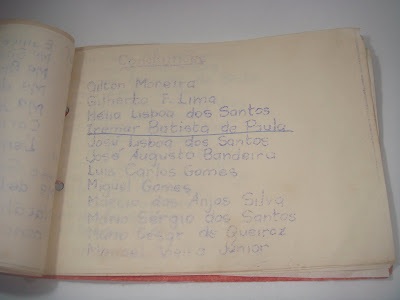 Odton Moreira
Gilberto F. Lima
Hélio Lisboa dos Santos
Iremar Batista de Paula
José Lisboa dos Santos
José Augusto Bandeira
Luis Carlos Gomes
Miguel Gomes
Márcio dos Anjos Silva
Mário Sérgio dos Santos
Mário Cesar de Queiroz
Manoel Vieira Júnior